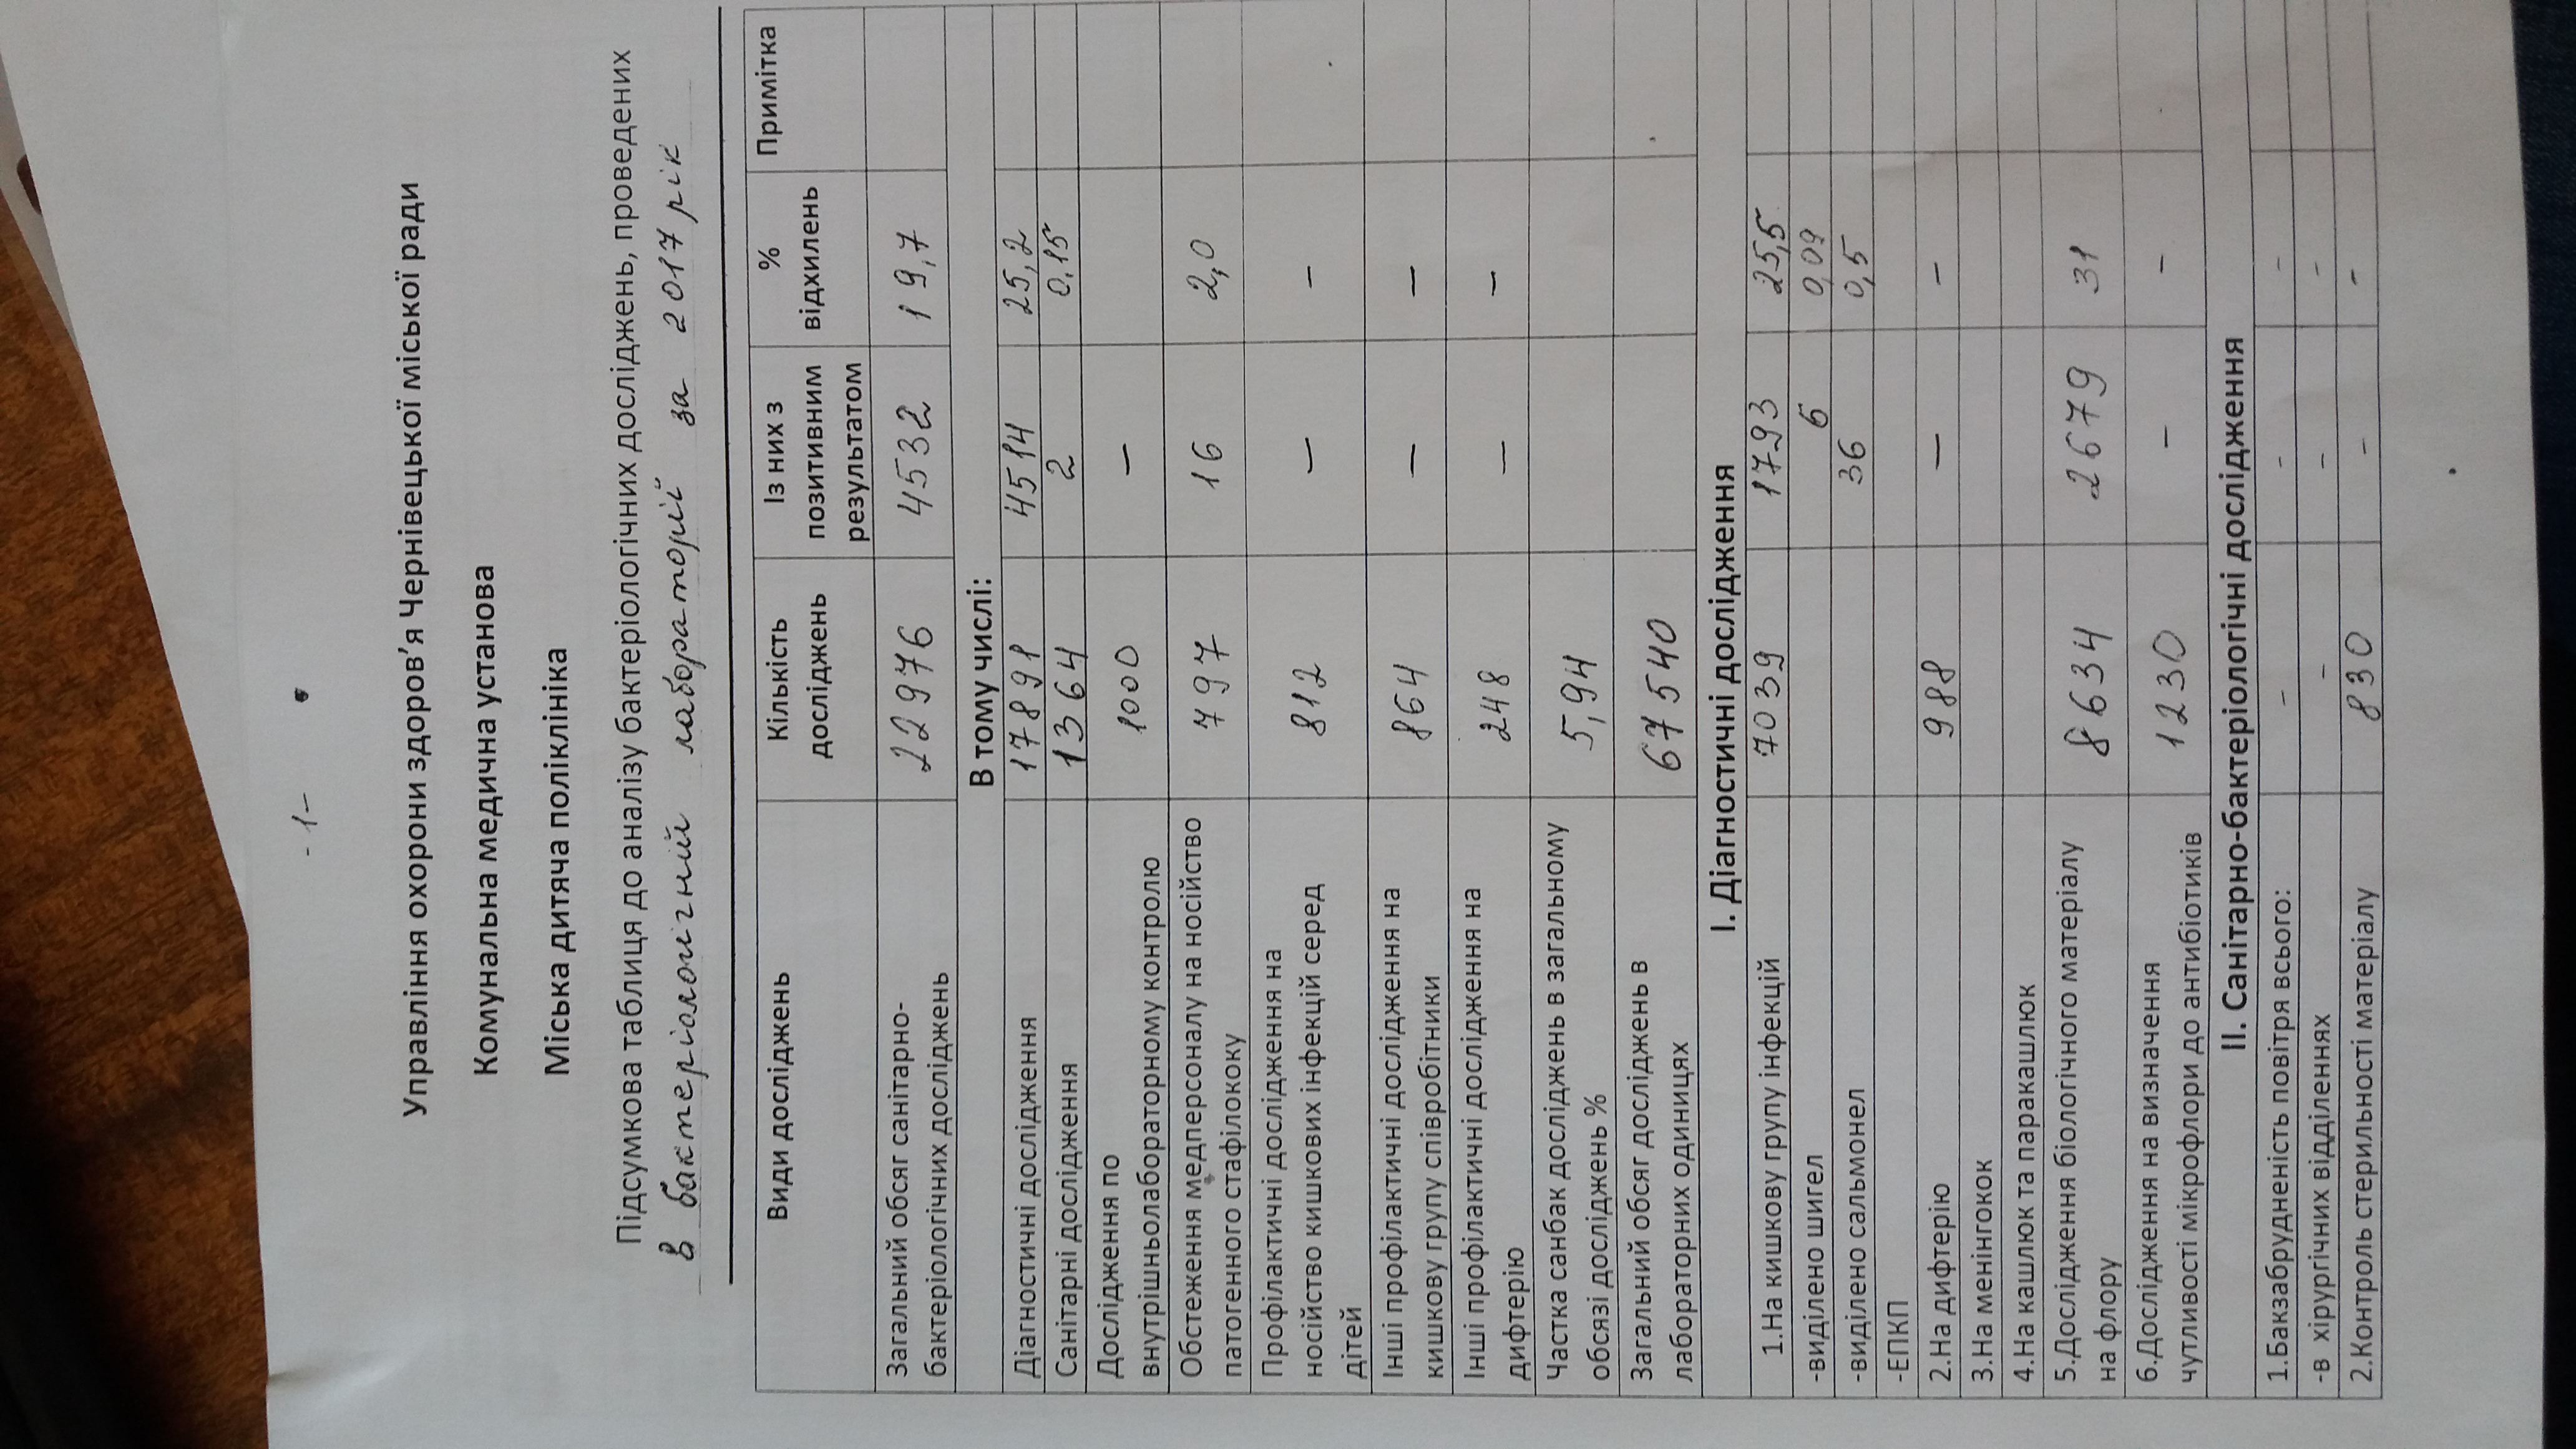 - 1 -
Управління охорони здоров'я Чернівецької міської ради
Комунальна медична установа
Міська дитяча поліклініка
Підсумкова таблиця до аналізу бактеріологічних досліджень, проведених
в бактеріологічній лабораторії за 2017 рік
Види досліджень | Кількість досліджень | Із них з позитивним результатом | % відхилень | Примітка
Загальний обсяг санітарно-
бактеріологічних досліджень 22976 4532 19,7
В тому числі:
Діагностичні дослідження 17891 4514 25,2
Санітарні дослідження 1364 2 0,15
Дослідження по
внутрішньолабораторному контролю 1000 –
Обстеження медперсоналу на носійство
патогенного стафілококу 797 16 2,0
Профілактичні дослідження на
носійство кишкових інфекцій серед
дітей 812 – –
Інші профілактичні дослідження на
кишкову групу співробітники 864 – –
Інші профілактичні дослідження на
дифтерію 248 – –
Частка санбак досліджень в загальному
обсязі досліджень % 5,94
Загальний обсяг досліджень в
лабораторних одиницях 67540
І. Діагностичні дослідження
1.На кишкову групу інфекцій 7039 1793 25,5
-виділено шигел 6 0,09
-виділено сальмонел 36 0,5
-ЕПКП
2.На дифтерію 988 – –
3.На менінгокок
4.На кашлюк та паракашлюк
5.Дослідження біологічного матеріалу
на флору 8634 2679 31
6.Дослідження на визначення
чутливості мікрофлори до антибіотиків 1230 – –
ІІ. Санітарно-бактеріологічні дослідження
1.Бакзабрудненість повітря всього: - - -
-в хірургічних відділеннях - - -
2.Контроль стерильності матеріалу 830 - -